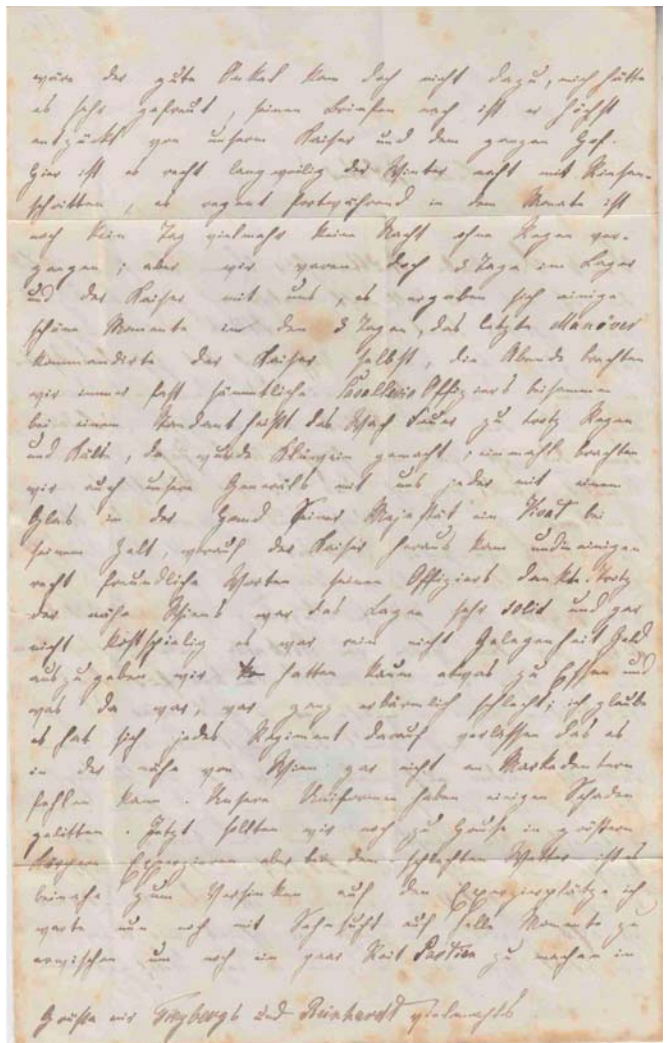 wäre der gute Onkel kam doch nicht dazu, mich hätte
es sehr gefreut, seinen Briefen nach ist er höchst
entzückt von unserm Kaiser und dem ganzen Hof.
Hier ist es recht langweilig der Winter naht mit Riesen-
schritten, es regent fortwährend in dem Monate ist
noch kein Tag vielmehr keine Nacht ohne Regen ver-
gangen; aber wir waren doch 3 Tage im Lager
und der Kaiser mit uns, es ergaben sich einige
schöne Momente in den 3 Tagen, das letzte Manöver
kommandirte der Kaiser selbst, die Abende brachten
wir immer fast sämmtliche Cavallerie Offiziers beisammen
bei einem heißt das Wach Feuer zu trotz Regen
und Kälte, da wurde Glüwein gemacht, einmahl brachten
wir auch unsere Generäls mit uns jeder mit einem
Glas in der Hand Seiner Majestät ein Vivat bei
seinem Zelt, worauf der Kaiser heraus kam und in einigen
recht freundliche Worten seinen Offiziers dankte. Trotz
der nähe Wiens war das Lager sehr solid und gar
nicht kostspielig es war rein nicht Gelegenheit Geld
auszugeben wir hatten kaum etwas zu Essen und
was da war, war ganz erbärmlich schlecht; ich glaube
es hat sich jedes Regiment darauf verlassen das es
in der nähe von Wien gar nicht an Markedentern
fehlen kann. Unsere Uniformen haben einigen Schaden
gelitten. Jetzt sollten wir noch zu Hause in größern
Körpern Exerzieren aber bei dem schlechten Wetter ist es
beinahe zum Versinken auf den Exerzierplätze ich
warte nun noch mit Sehnsucht auf helle Momente zu
erwischen um noch ein paar Reit Partien zu machen in
Grüße mir Freybergs und Reinhardt vielmahls